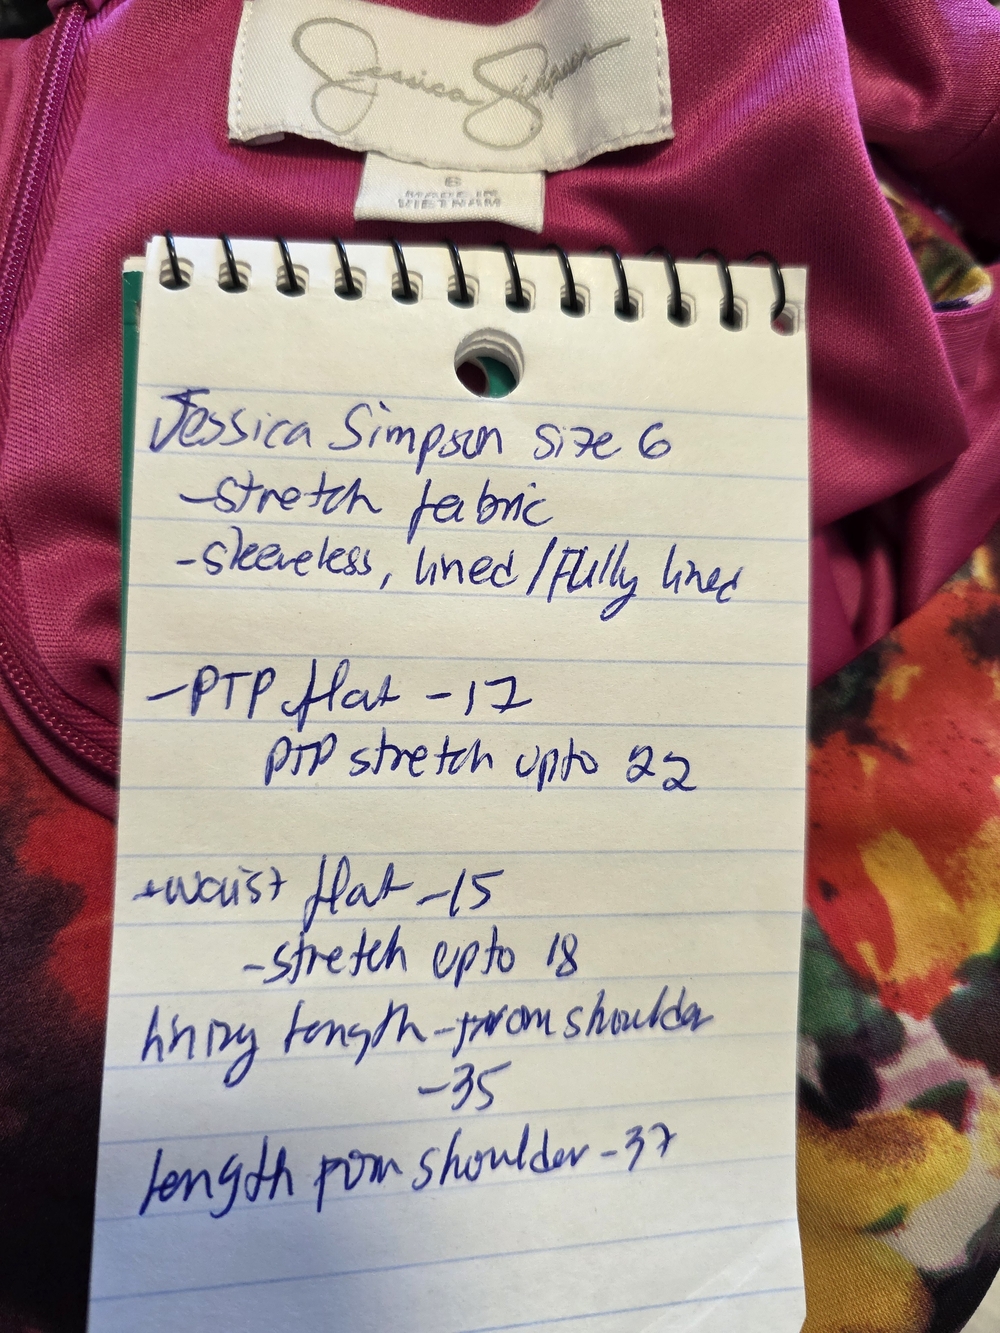 Jessica Simpson
6
MADE IN
VIETNAM
Jessica Simpson size 6
-stretch fabric
-sleeveless, lined/Fully lined
-PTP flat -17
PTP stretch upto 22
-waist flat -15
-stretch upto 18
lining length-from shoulder
-35
length from shoulder-37